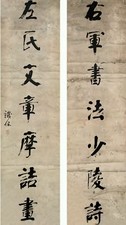 右軍書法少陵詩
左氏文章摩詰畫